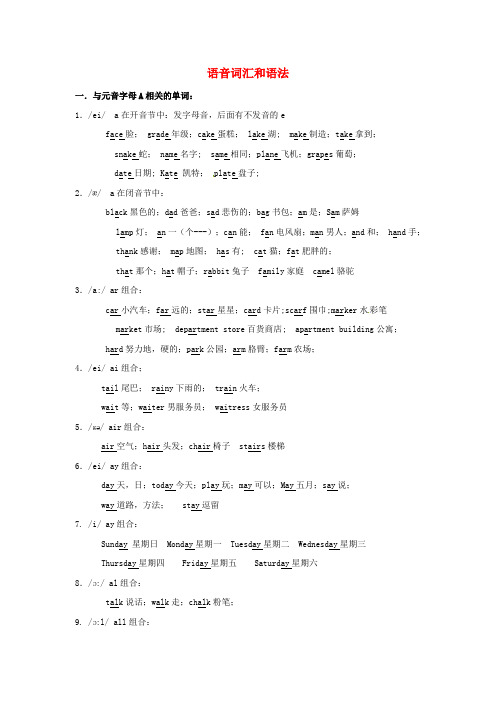 语音词汇和语法
一．与元音字母A相关的单词:
1．/ei/ a在开音节中：发字母音，后面有不发音的e
face脸； grade年级；cake蛋糕； lake湖； make制造；take拿到；
snake蛇； name名字； same相同；plane飞机；grapes葡萄；
date日期；Kate 凯特； plate盘子；
2．/æ/ a在闭音节中：
black黑色的；dad爸爸；sad悲伤的；bag书包；am是；Sam萨姆
lamp灯； an一（个---）；can能； fan电风扇；man男人；and和； hand手；
thank感谢； map地图； has有； cat猫；fat肥胖的；
that那个；hat帽子；rabbit兔子 family家庭 camel骆驼
3．/a:/ ar组合：
car小汽车；far远的；star星星；card卡片；scarf围巾；marker水彩笔
market市场； department store百货商店； apartment building公寓；
hard努力地，硬的；park公园；arm胳臂；farm农场；
4．/ei/ ai组合；
tail尾巴； rainy下雨的； train火车；
wait等；waiter男服务员； waitress女服务员
5．/ɛə/ air组合：
air空气；hair头发；chair椅子 stairs楼梯
6．/ei/ ay组合：
day天，日；today今天；play玩；may可以；May五月；say说；
way道路，方法； stay逗留
7. /i/ ay组合：
Sunday 星期日 Monday星期一 Tuesday星期二 Wednesday星期三
Thursday星期四 Friday星期五 Saturday星期六
8．/ɔ:/ al组合：
talk说话；walk走；chalk粉笔；
9. /ɔ:l/ all组合：